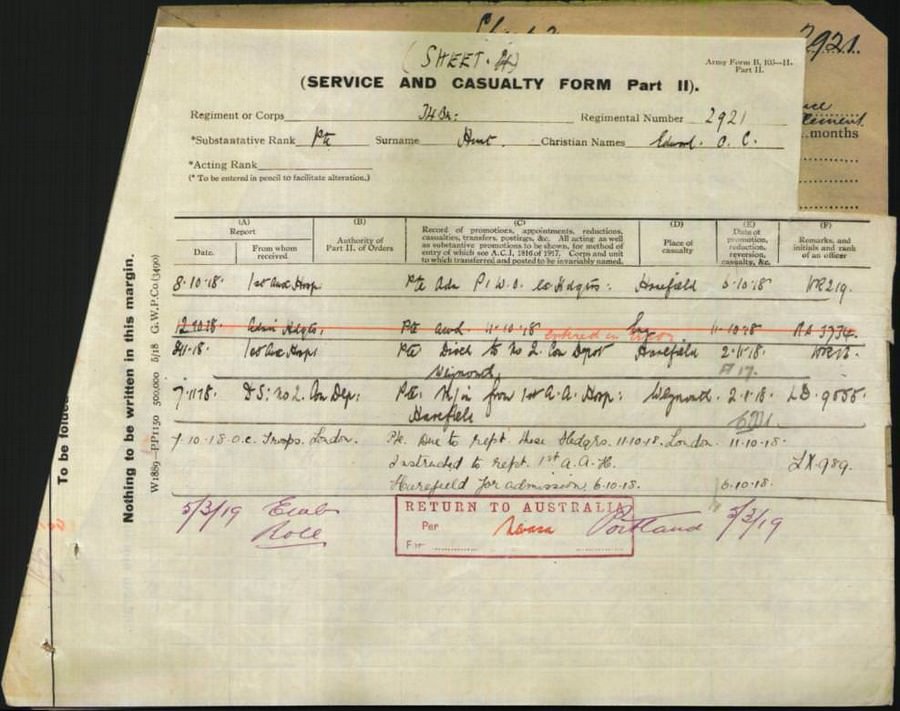 (SHEET.
2921.
Army Form B. 103—II.
Part II.
(SERVICE AND CASUALTY FORM Part II).
Regiment or Corps
Regimental Number 2921
*Substantative Rank Pte Surname Hunt. Christian Names Edward. O. C.
*Acting Rank
(* To be entered in pencil to facilitate alteration.)
months
(A) Report
Date.
From whom received
(B)
Authority of Part II. of Orders
(C)
Record of promotions, appointments, reductions, casualties, transfers, postings, &c. All acting as well as substantive promotions to be shown, for method of entry of which see A.C.I. 1816 of 1917. Corps and unit to which transferred and posted to be invariably named.
(D)
Place of casualty
(E)
Date of promotion, reduction, reversion, casualty, &c.
(F)
Remarks, and initials and rank of an officer
8·10·18 1st Aux Hosp Pte Adm Hdqtrs: Harefield 6·10·18 WR219.
12·10·18 Admin Hdqtrs, Pte 11·10·18 entered in error 11·10·18
1st Aux Hosp Pte Disch to No 2. Con Depot Harefield
Weymouth
7·11·18. No 2. Con Dep: Pte. M/in from 1st A.A. Hosp: Weymouth
Harefield
7·10·18 O.C. Troops. London. Pte. Due to rept. these Hedqrs. 11·10·18. London. 11·10·18.
Instructed to rept. 1st A.A.H. LX.989.
Harefield for admission, 6·10·18. 6·10·18.
5/3/19 Emb Roll
RETURN TO AUSTRALIA
Per Nevasa
For
Portland 5/3/19
To be folded
Nothing to be written in this margin.
W1889—PP1150 500,000 5/18 G.W.P.Co.(3490)